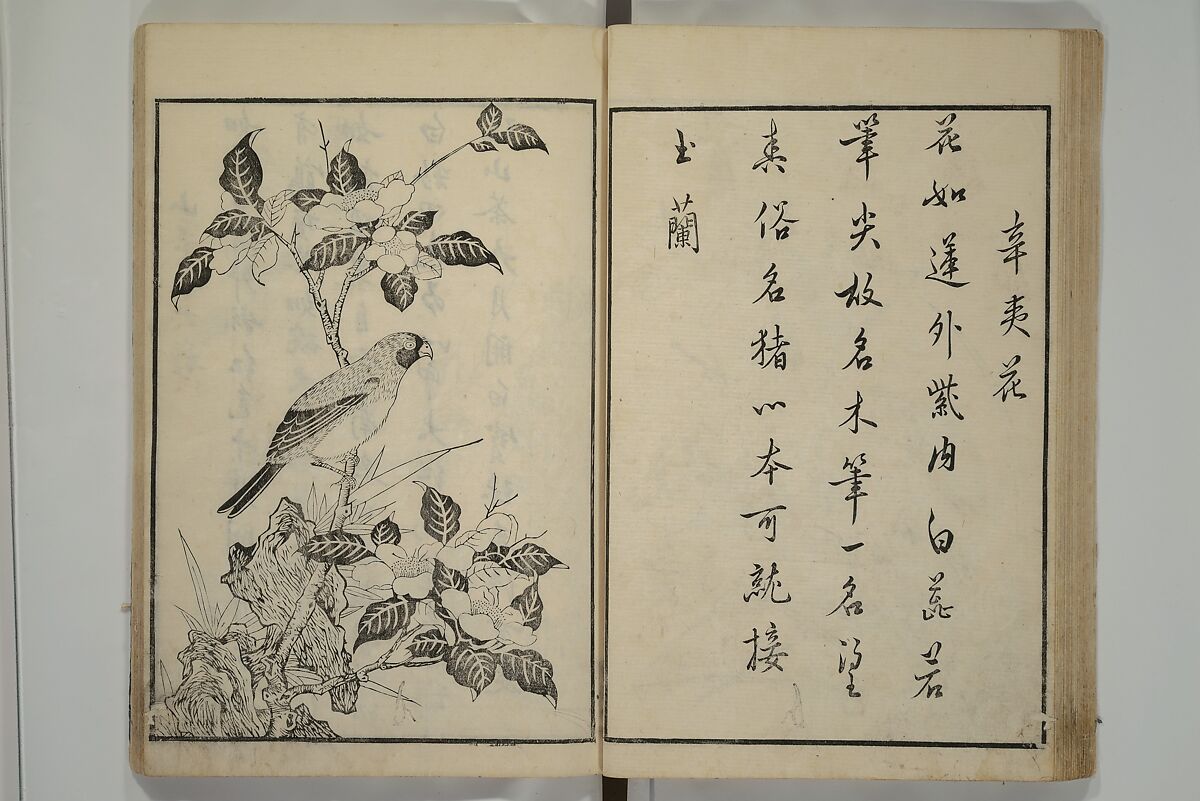 辛夷花
花如蓮外紫内白蕊若
筆尖故名木筆一名望
春俗名猪心本可就接
玉蘭